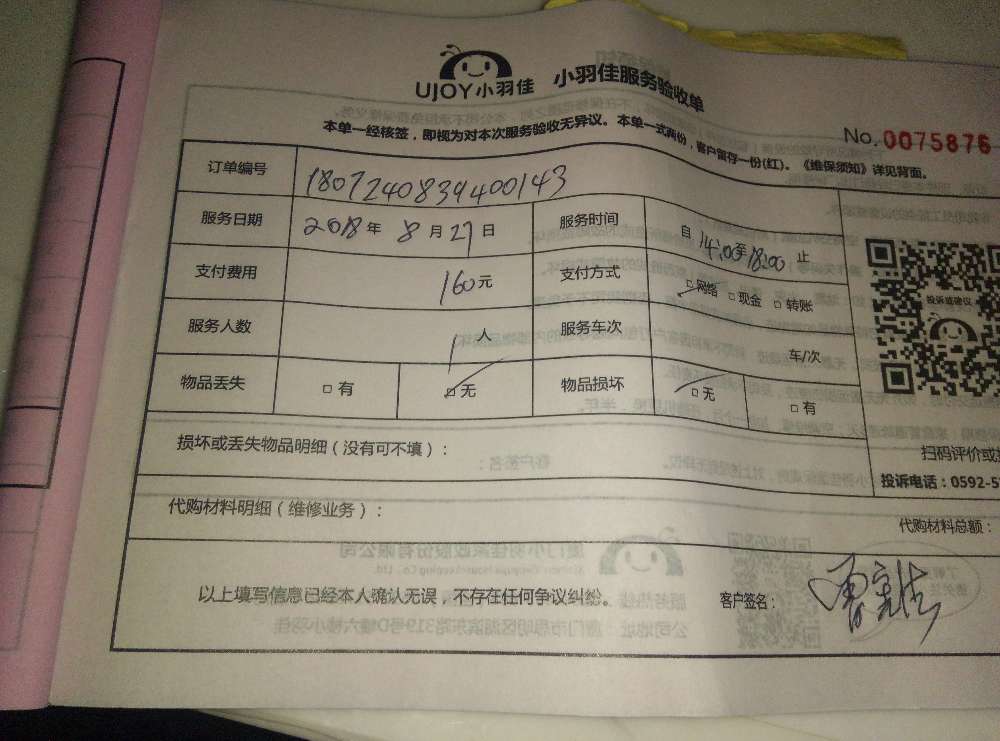 UJOY小羽佳 小羽佳服务验收单
本单一经核签，即视为对本次服务验收无异议。本单一式两份，客户留存一份(红)。《维保须知》详见背面。
No.0075876
订单编号 1807240839400143
服务日期 2018年 8月27日 服务时间 自 14:00至18:00 止
支付费用 160元 支付方式 网络 现金 转账
服务人数 1人 服务车次 车/次
物品丢失 有 无 物品损坏 无 有
投诉或建议
损坏或丢失物品明细（没有可不填）：
扫码评价或
投诉电话：0592-5
代购材料明细（维修业务）：
代购材料总额：
以上填写信息已经本人确认无误，不存在任何争议纠纷。
客户签名：